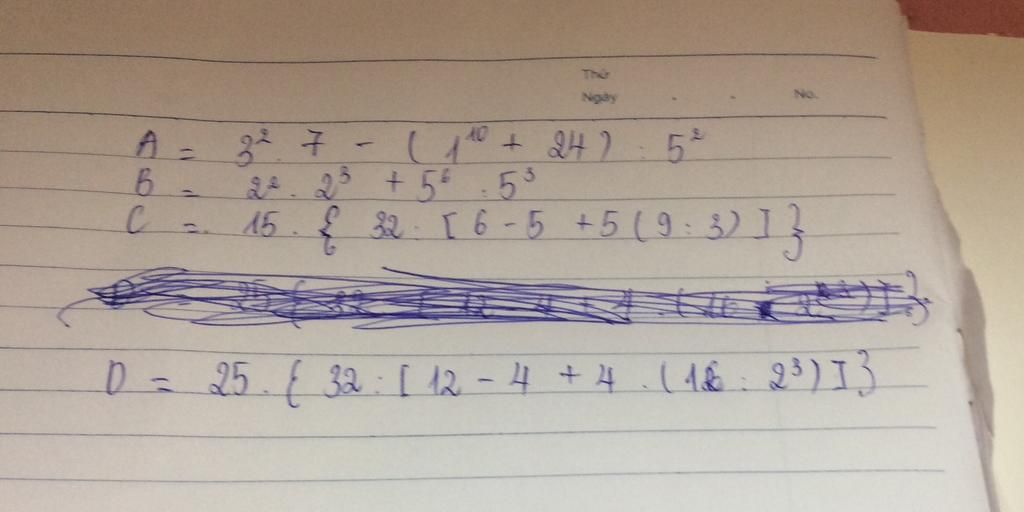 Thứ
Ngày . . No.
A = 3². 7 - ( 1¹⁰ + 24 ) : 5²
B = 2². 2³ + 5⁶ : 5³
C = 15. { 32 : [ 6 - 5 + 5 ( 9 : 3 ) ] }
D = 25. { 32 : [ 12 - 4 + 4 . ( 16 : 2³ ) ] }